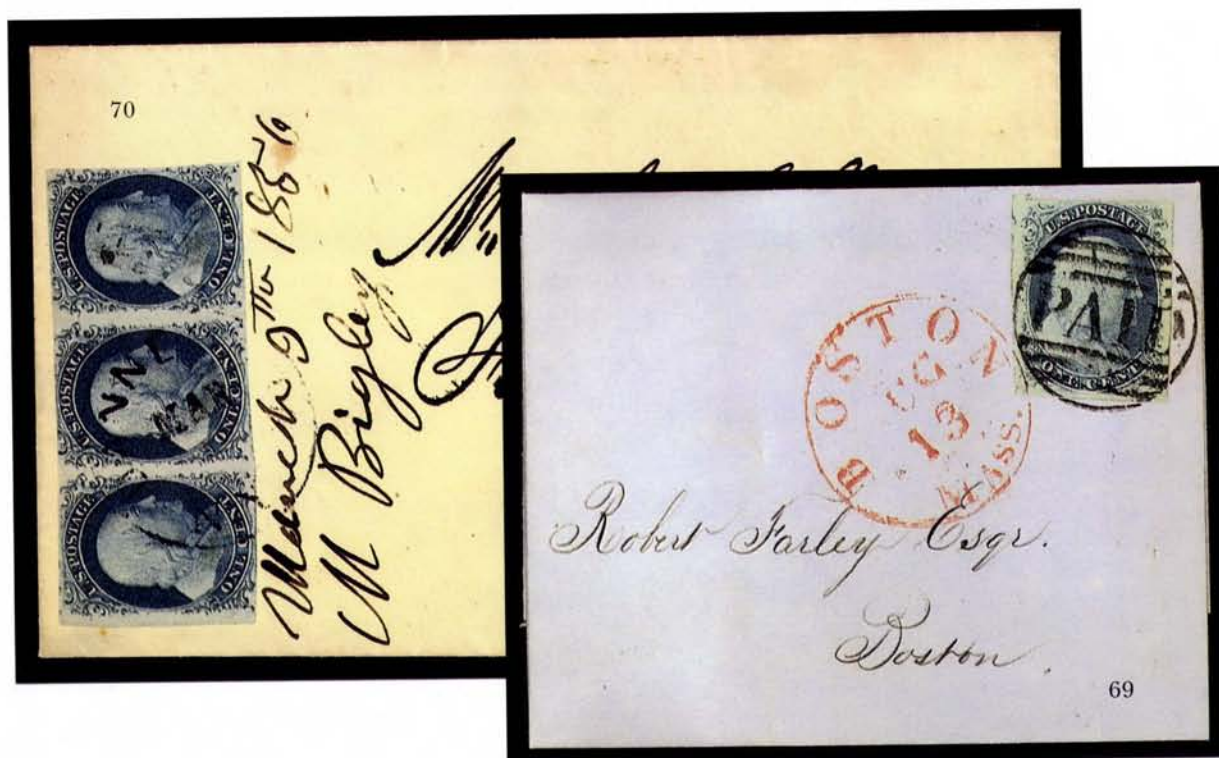 70
U.S. POSTAGE
ONE CENT
U.S. POSTAGE
ONE CENT
MAR
U.S. POSTAGE
ONE CENT
March 9th 1856
M Bigley
U.S. POSTAGE
PAID
ONE CENT
BOSTON
13
Mass.
Robert Farley Esqr.
Boston.
69